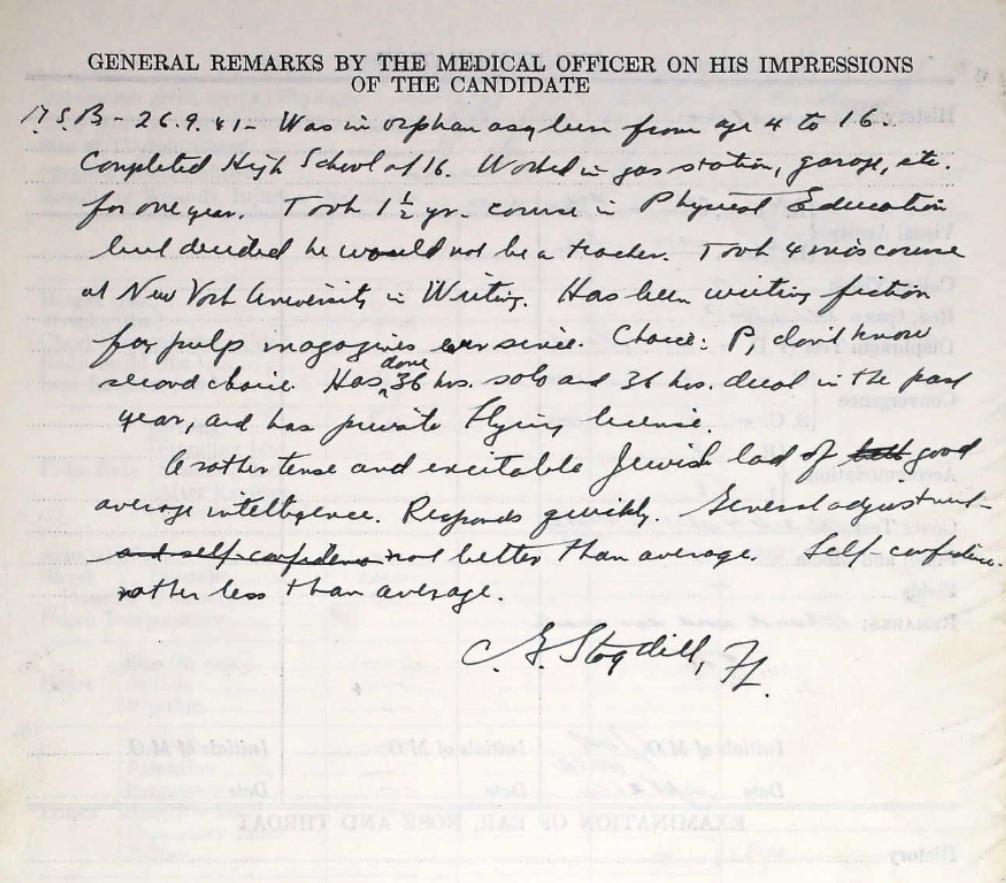 GENERAL REMARKS BY THE MEDICAL OFFICER ON HIS IMPRESSIONS
OF THE CANDIDATE
M.S.B - 26.9.41 - Was in orphan asylum from age 4 to 16.
Completed High School at 16. Worked in gas station, garage, etc.
for one year. Took 1 1/2 yr. course in Physical Education
but decided he would not be a teacher. Took 4 mos course
at New York University in Writing. Has been writing fiction
for pulp magazines ever since. Choice: P, don't know
second choice. Has done 36 hrs. solo and 36 hrs. dual in the past
year, and has private flying license.
A rather tense and excitable Jewish lad of good
average intelligence. Responds quickly. General adjustment
and self-confidence not better than average. Self-confidence
rather less than average.
C. G. Stogdill, F/L.
Initials of M.O.
Initials of M.O.
Initials of M.O.
Date
Date
Date
EXAMINATION OF EAR, NOSE AND THROAT
History